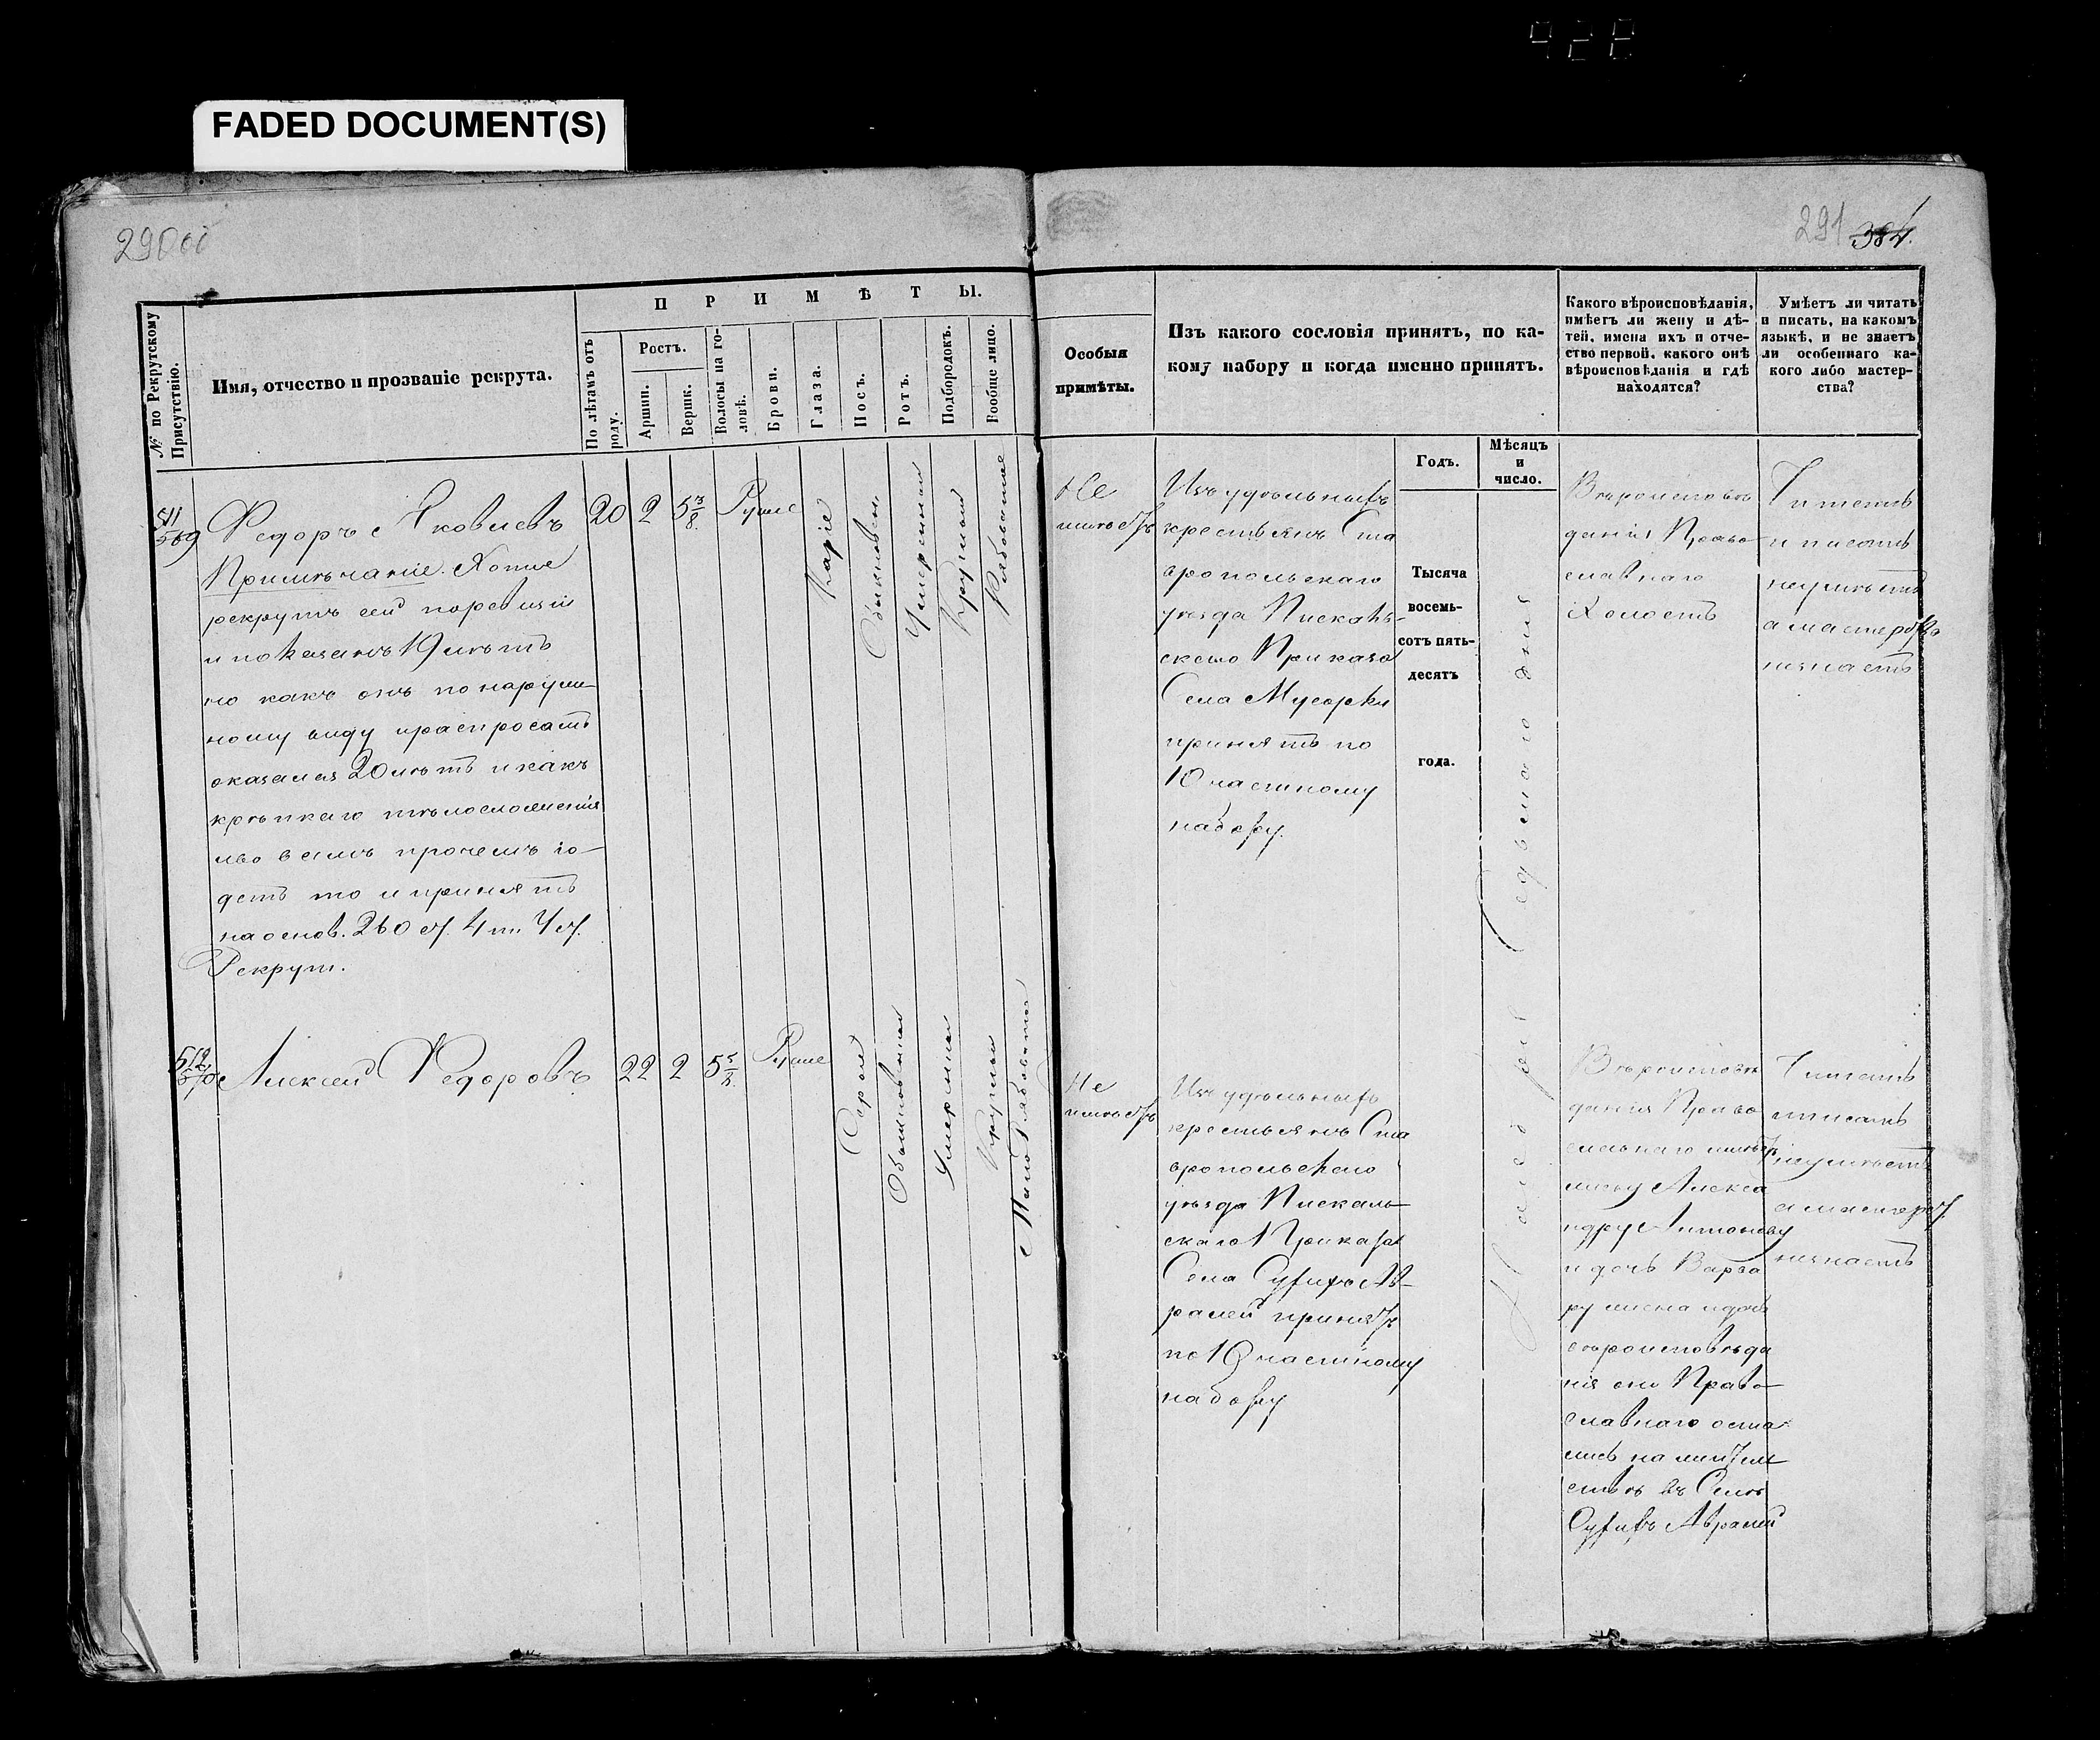 428
FADED DOCUMENT(S)
290об
291 384.
№ по Рекрутскому Присутствію.
Имя, отчество и прозваніе рекрута.
ПРИМѢТЫ.
По лѣтамъ отъ роду.
Ростъ.
Аршин.
Вершк.
Волосы на головѣ.
Брови.
Глаза.
Носъ.
Ротъ.
Подбородокъ.
Вообще лицо.
Особыя
примѣты.
Изъ какого сословія принятъ, по ка-
кому набору и когда именно принятъ.
Годъ.
Мѣсяцъ
и
число.
Какого вѣроисповѣданія,
имѣетъ ли жену и дѣ-
тей, имена ихъ и отче-
ство первой, какого онѣ
вѣроисповѣданія и гдѣ
находятся?
Умѣетъ ли читать
и писать, на какомъ
языкѣ, и не знаетъ
ли особеннаго ка-
кого либо мастер-
ства?
511
569
Федоръ Яковлевъ
Примѣчаніе. Хотя
рекрутъ сей по ревизіи
и показанъ 19 лѣтъ
но какъ онъ по наруж-
ному виду и распросамъ
оказался 20 лѣтъ и какъ
крѣпкаго тѣлосложенія
и во всемъ прочемъ го-
денъ то и принятъ
на основ. 260 ст. 4 т.
Рекрут.
20
2
5 3/8
Русые
Каріе
Обыкновен.
Умеренный
Круглый
Рябоватое
Не
имѣетъ
Изъ удѣльныхъ
крестьянъ Ста
вропольскаго
уѣзда Пискаль-
скаго Приказа
Села Мусорки
принятъ по
10 частному
набору.
Тысяча
восемь-
сотъ пять-
десятъ
года.
Седьмаго дня
Вѣроисповѣ
данія Право
славнаго
Холостъ
Читать
и писать
неумѣетъ
а мастерства
незнаетъ
512
570
Алексей Федоровъ
22
2
Русые
Серые
Обыкновенный
Умеренный
Круглый
Рябоватое
Не
имѣетъ
Изъ удѣльныхъ
крестьянъ Ста
вропольскаго
уѣзда Пискаль-
скаго Приказа
Села Сухихъ Ав-
ралей принятъ
по 10 частному
набору
Вѣроисповѣ
данія Право
славнаго имѣетъ
жену Алекса
ндру Антонову
и дочь Варва
ру жена и дочь
вѣроисповѣда
нія оне Право-
славнаго оста
лись на житель
ствѣ въ Селѣ
Сухихъ Авралей
Читать
и писать
неумѣетъ
а мастерст.
незнаетъ